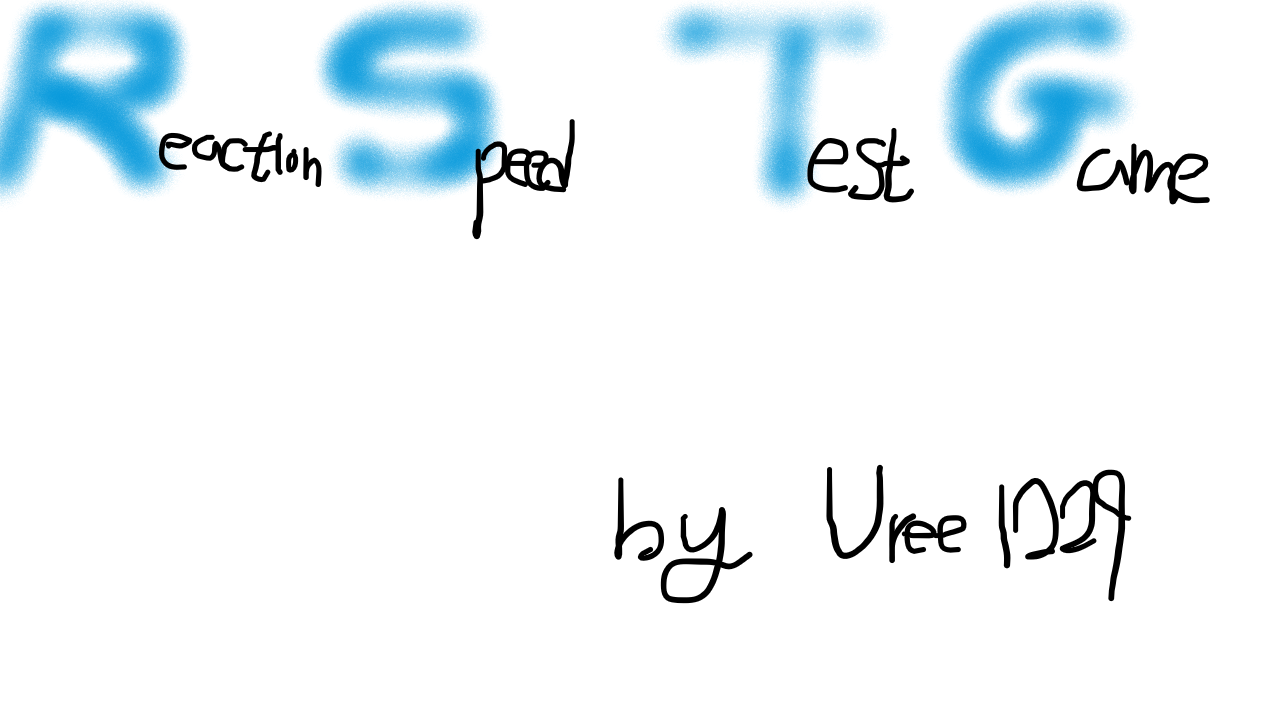 Reaction Speed Test Game
by Uree 1229